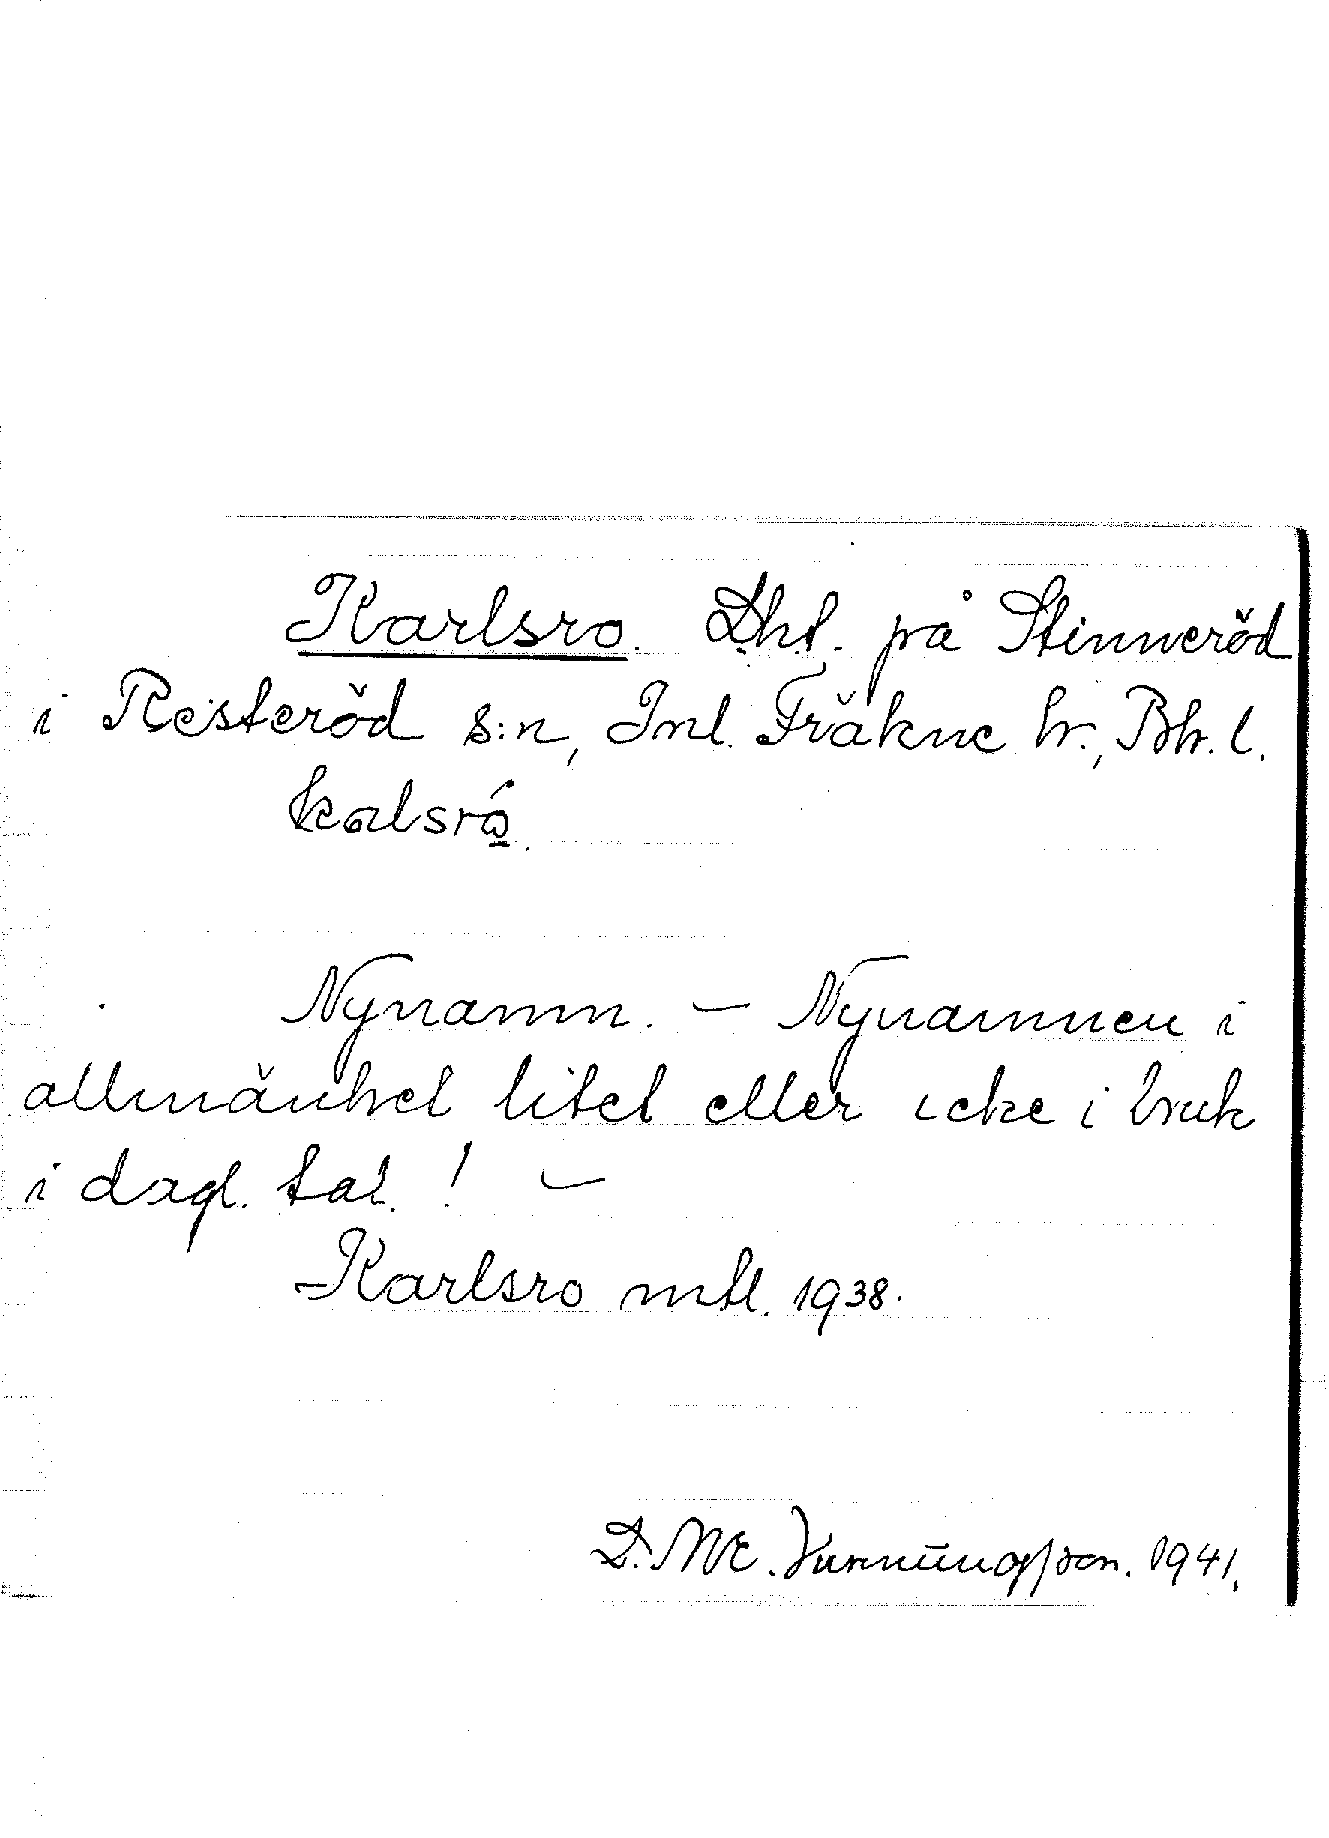 Karlsro. Lht. på Stinneröd
i Resteröd s:n, Inl. Fräkne hr., Bh. l.
kalsrò.
Nynamn. – Nynamnen i
allmänhet litet eller icke i bruk
i dagl. tal. ! –
Karlsro mtl. 1938.
D. 1941.